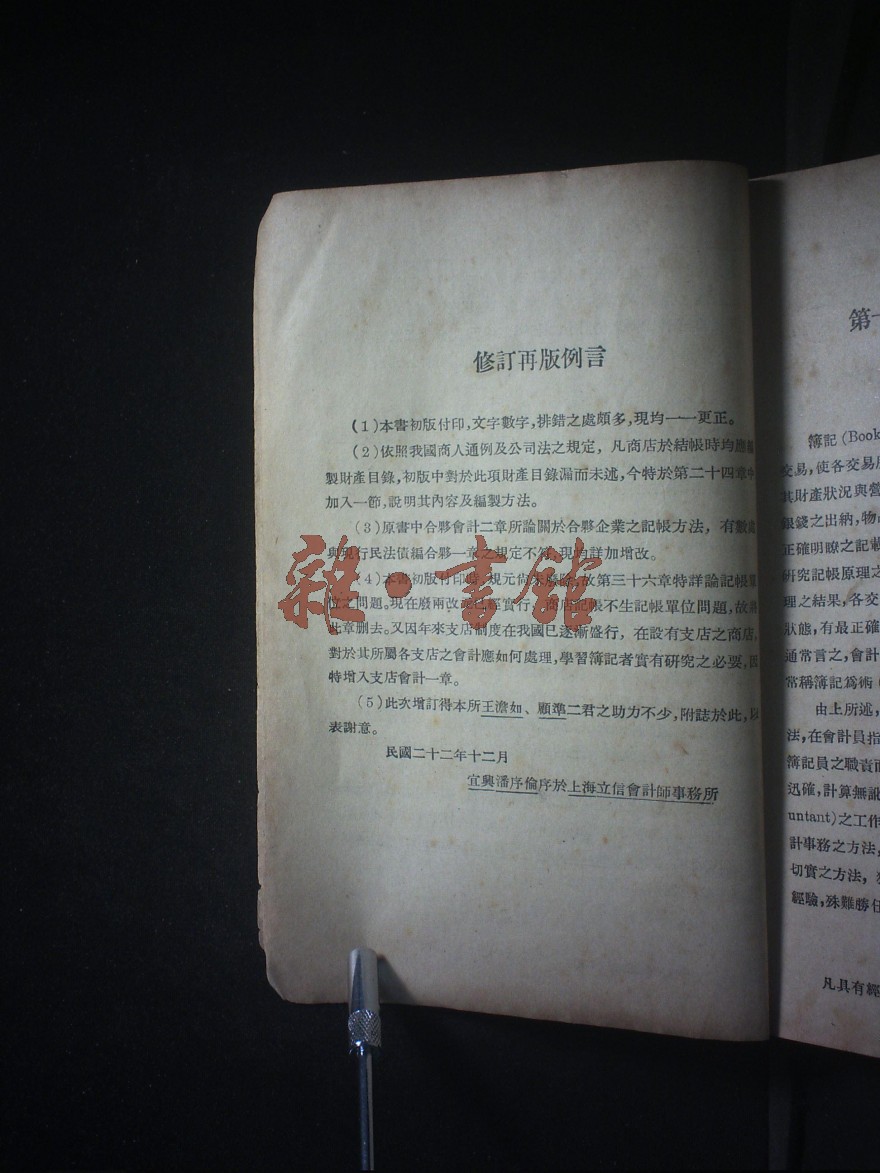 修訂再版例言
(1)本書初版付印,文字數字,排錯之處頗多,現均一一更正。
(2)依照我國商人通例及公司法之規定,凡商店於結帳時均應編
製財產目錄,初版中對於此項財產目錄漏而未述,今特於第二十四章中
加入一節,說明其內容及編製方法。
(3)原書中合夥會計二章所論關於合夥企業之記帳方法,有數處
與現行民法債編合夥一章之規定不符,現均詳加增改。
(4)本書初版付印時,規元尚未廢除,故第三十六章特詳論記帳單
位之問題。現在廢兩改元已經實行,商店記帳不生記帳單位問題,故將
此章删去。又因年來支店制度在我國已逐漸盛行,在設有支店之商店,
對於其所屬各支店之會計應如何處理,學習簿記者實有研究之必要,因
特增入支店會計一章。
(5)此次增訂得本所王澹如、顧準二君之助力不少,附誌於此,以
表謝意。
民國二十二年十二月
宜興潘序倫序於上海立信會計師事務所
雜·書館
第
簿記(Book
交易,使各交易
其財產狀況與營
銀錢之出納,物
正確明瞭之記載
研究記帳原理之
理之結果,各交
狀態,有最正確
通常言之,會計
常稱簿記爲術(
由上所述,
法,在會計員指
簿記員之職責而
迅確,計算無訛
untant)之工作
計事務之方法,
切實之方法,
經驗,殊難勝任
凡具有經